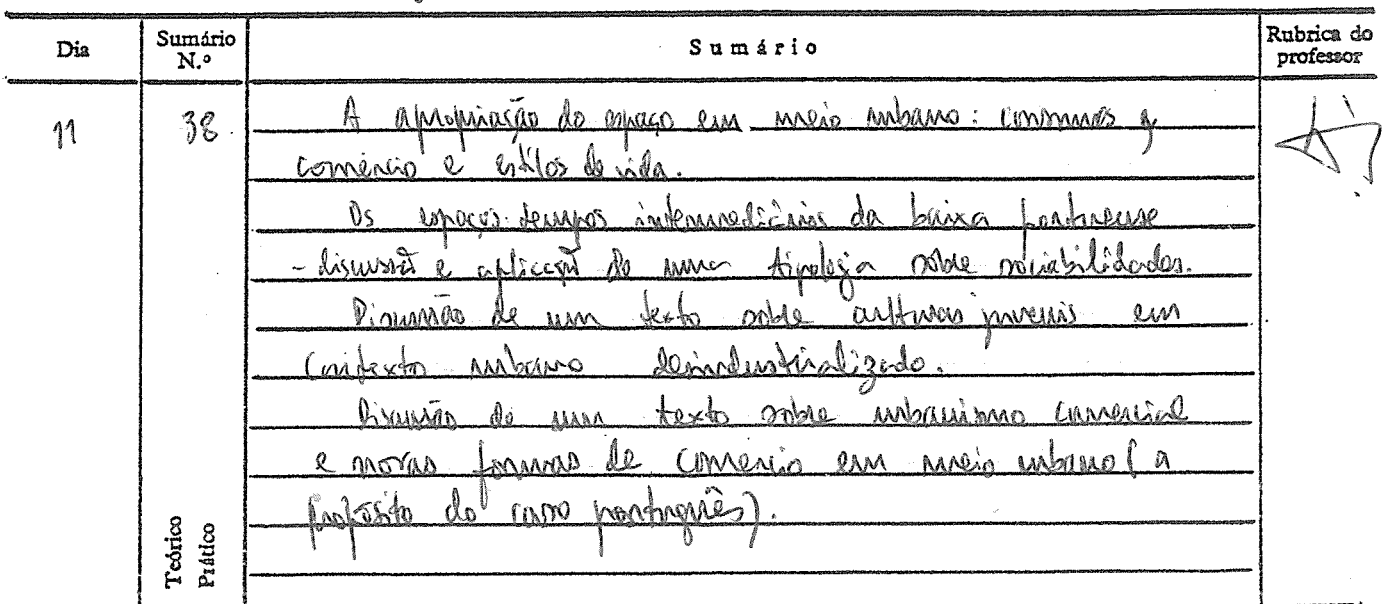 Dia
Sumário N.º
Sumário
Rubrica do professor
11
38.
A apropriação do espaço em meio urbano: consumos,
comércio e estilos de vida.
Os espaços-tempos intermediários da baixa portuense
- discussão e aplicação de uma tipologia sobre sociabilidades.
Discussão de um texto sobre culturas juvenis em
contexto urbano desindustrializado.
Discussão de um texto sobre urbanismo comercial
e novas formas de comércio em meio urbano (a
propósito do caso português).
Teórico
Prático